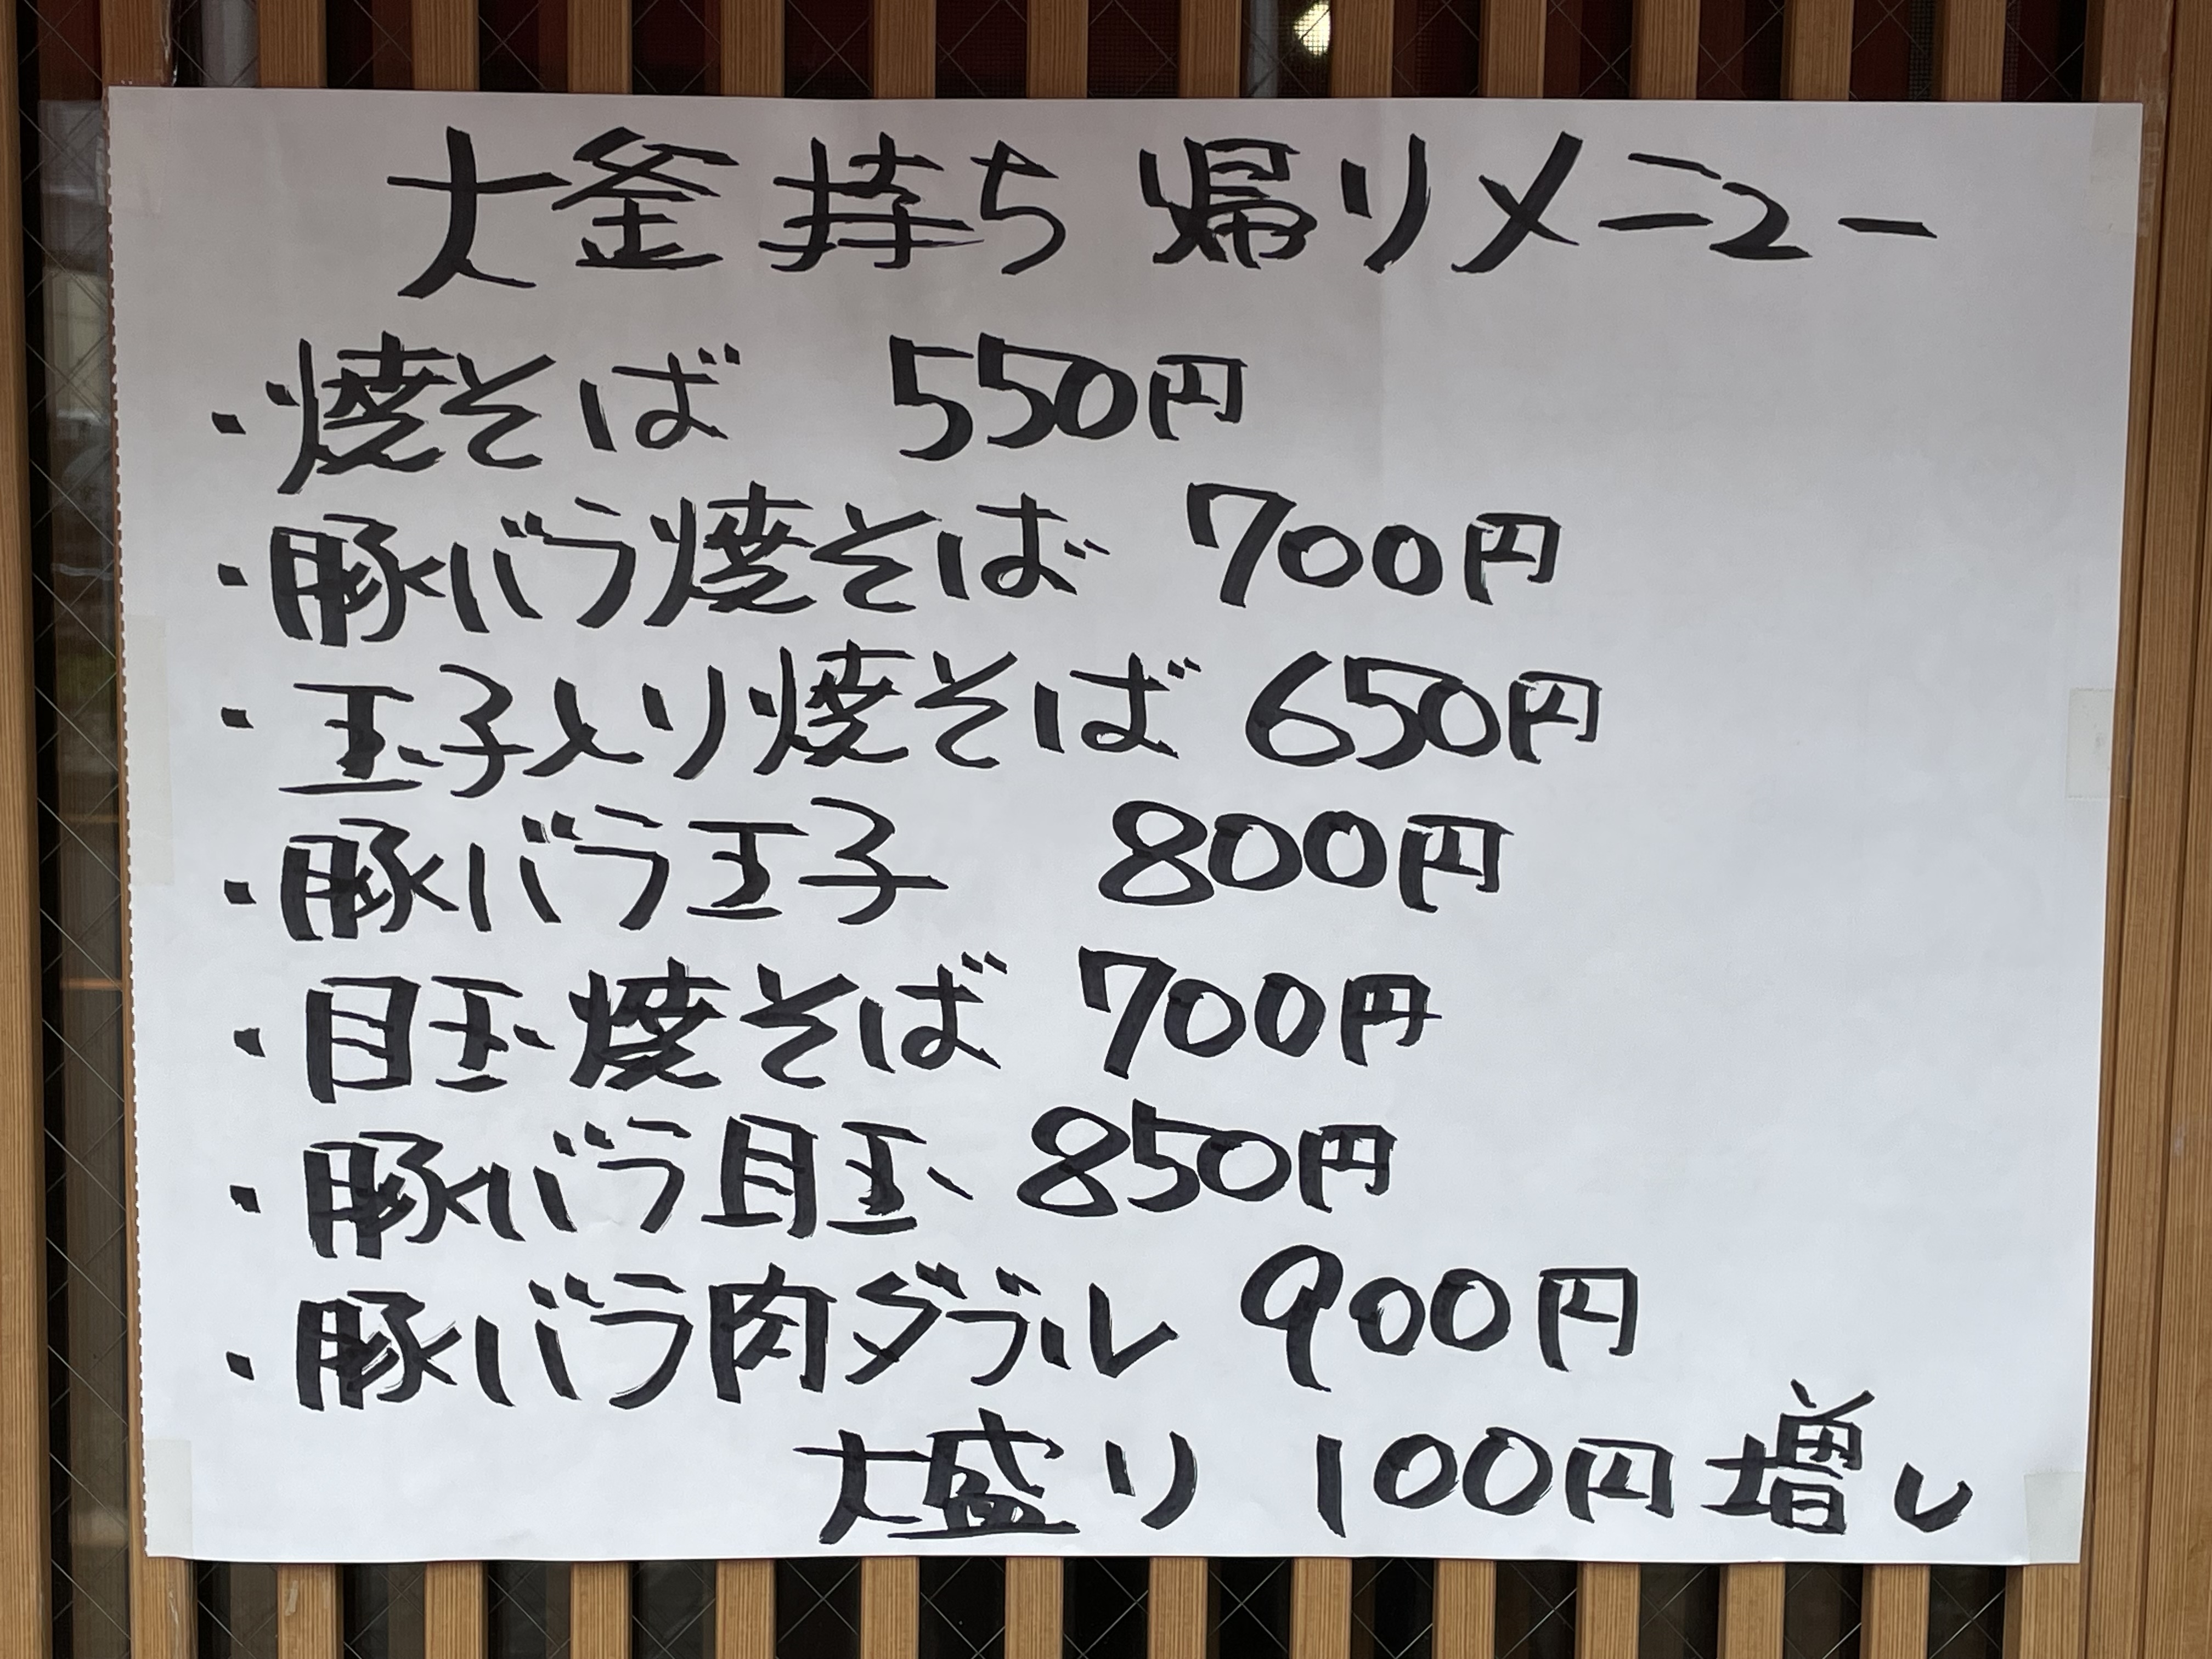 大釜持ち帰りメニュー
・焼そば 550円
・豚バラ焼そば 700円
・玉子入り焼そば 650円
・豚バラ玉子 800円
・目玉焼そば 700円
・豚バラ目玉 850円
・豚バラ肉ダブル 900円
大盛り 100円増し